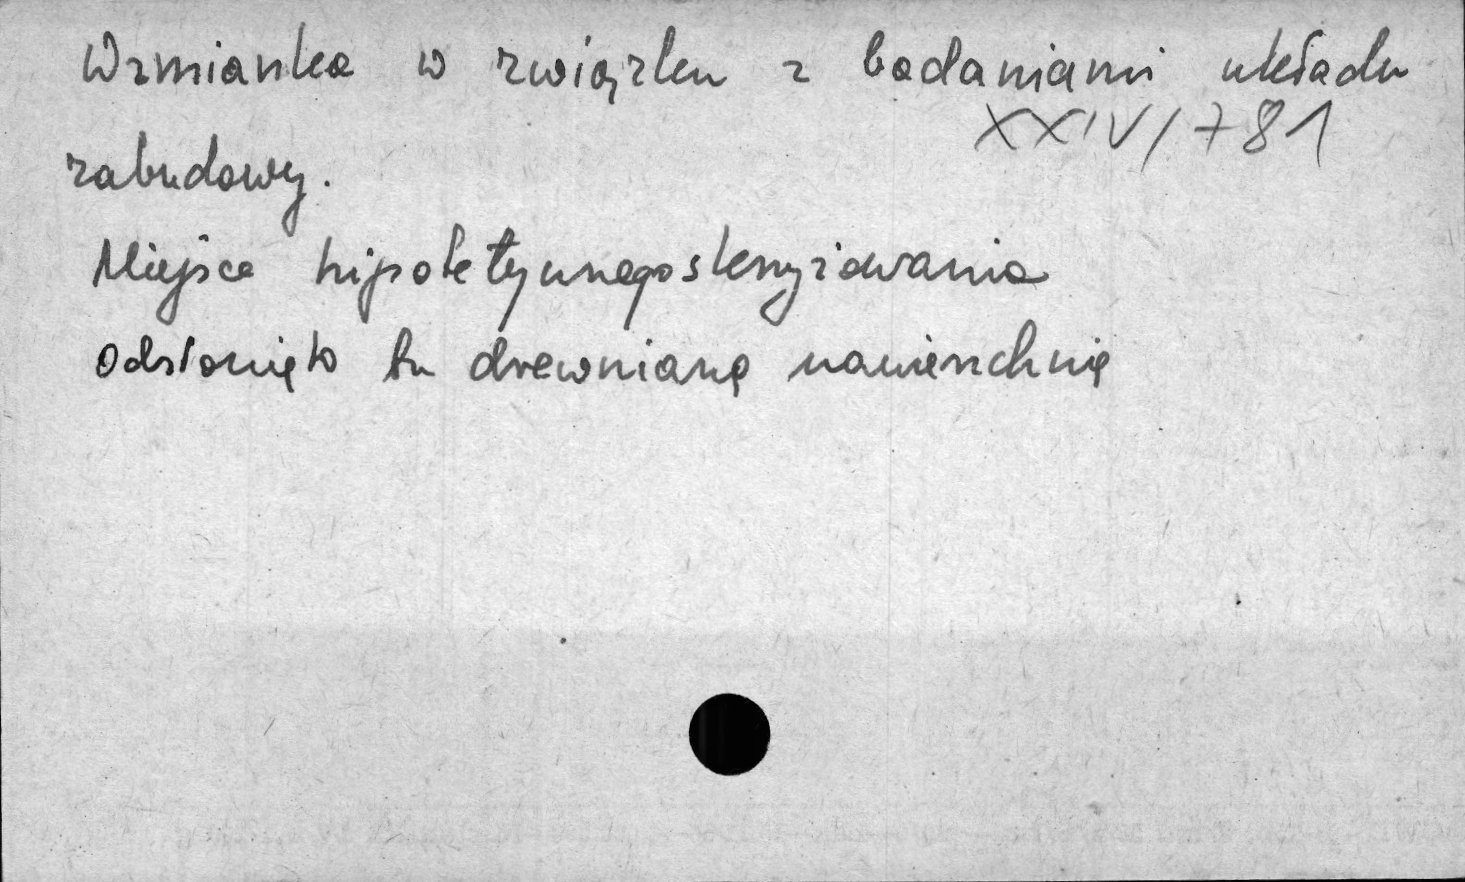 Wzmianka w związku z badaniami układu
XXIV/781
zabudowy.
Miejsce hipotetycznego skrzyżowania
Odsłonięto tu drewnianą nawierzchnię